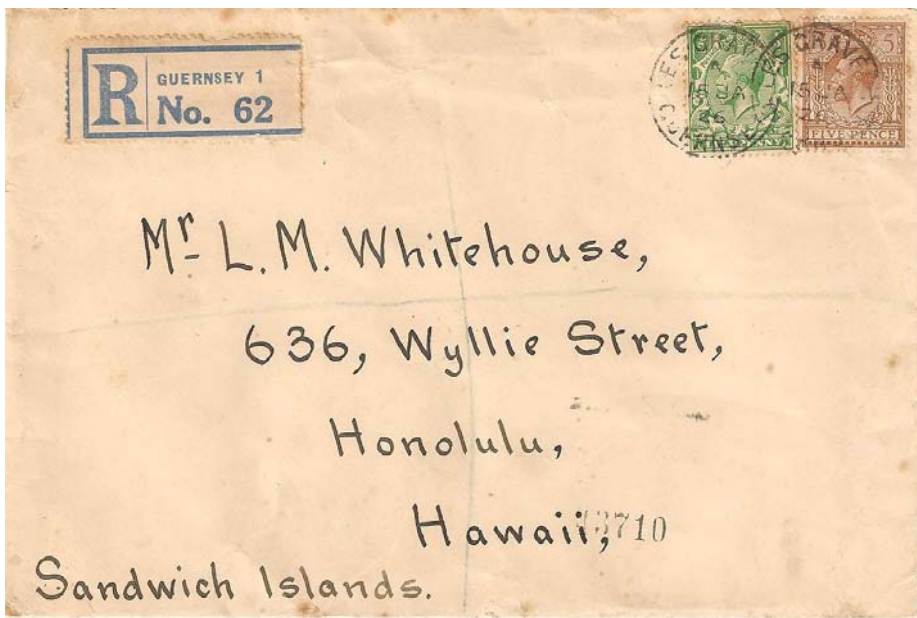 R
GUERNSEY 1
No. 62
LES GRAVE
15 JA
26
GUERNSEY
GRAVE
15 JA
26
FIVE PENCE
Mr L. M. Whitehouse,
636, Wyllie Street,
Honolulu,
Hawaii,
3710
Sandwich Islands.